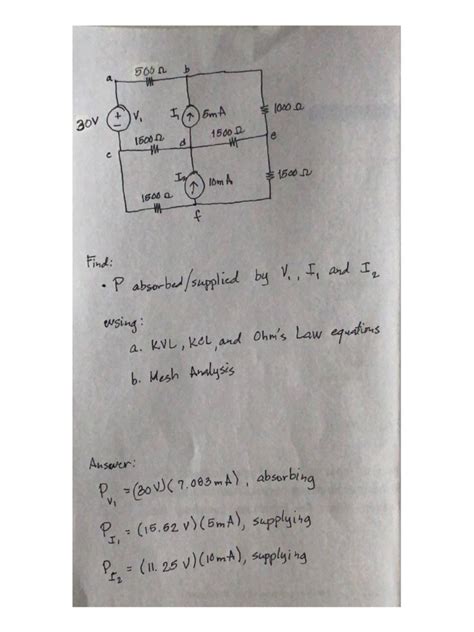 500 Ω
a b
30V V₁ I₁ 5mA 1000 Ω
1500 Ω 1500 Ω
c d e
I₂ 10mA 1500 Ω
1500 Ω
f
Find:
• P absorbed/supplied by V₁, I₁ and I₂
using:
a. KVL, KCL, and Ohm's Law equations
b. Mesh Analysis
Answer:
P_V₁ = (30V)(7.083mA), absorbing
P_I₁ = (15.62 V)(5mA), supplying
P_I₂ = (11.25 V)(10mA), supplying